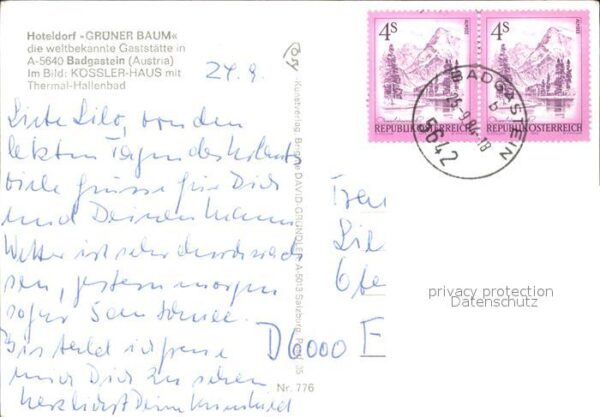 Hoteldorf »GRÜNER BAUM«
die weltbekannte Gaststätte in
A-5640 Badgastein (Austria)
Im Bild: KÖSSLER-HAUS mit
Thermal-Hallenbad
24.9.
Liebe Lilo, von den
letzten Tagen des Urlaubs
viele Grüsse für Dich
und Deinen Mann
Wetter ist sehr durchwach
sen, gestern morgen
sogar 5 cm Schnee.
Bis bald ich freue
mich Dich zu sehen
herzlichst Deine
Kunstverlag Brigitte DAVID-GRÜNDLER A-5013 Salzburg, Postf. 35
Nr. 776
4S
ALMSEE
REPUBLIK ÖSTERREICH
4S
ALMSEE
REPUBLIK ÖSTERREICH
BADGASTEIN
b
-9.84-18
5642
Frau
Lil
D 6000 F
privacy protection
Datenschutz